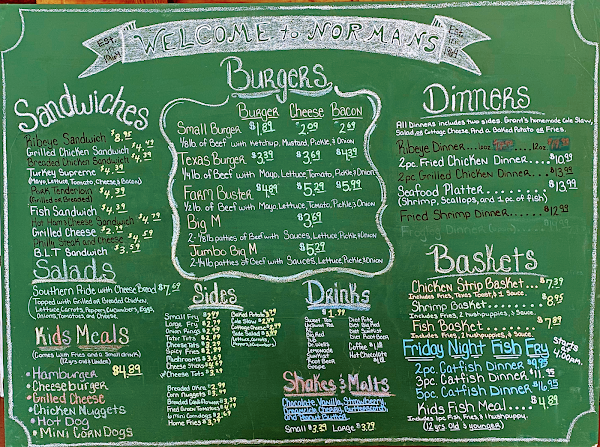 WELCOME to NORMANS
Sandwiches
Ribeye Sandwich $8.95
Grilled Chicken Sandwich $4.49
Breaded Chicken Sandwich $4.39
Turkey Supreme $4.39
(Mayo, Lettuce, Tomato, Cheese, & Bacon)
Pork Tenderloin $4.39
(Grilled or Breaded)
Fish Sandwich $4.39
Hot Ham & Cheese Sandwich $4.79
Grilled Cheese $2.79
Philly Steak and Cheese $4.59
B.L.T Sandwich $3.59
Salads
Southern Pride with Cheese Bread $7.69
Topped with Grilled or Breaded Chicken,
Lettuce, Carrots, Peppers, Cucumbers, Eggs,
Onions, Tomatoes and Cheese.
Kids Meals
(Comes with Fries and a Small drink)
(12yrs and Under)
•Hamburger $4.89
•Cheeseburger
•Grilled Cheese
•Chicken Nuggets
•Hot Dog
•Mini Corn Dogs
Burgers
Burger Cheese Bacon
Small Burger $1.89 $2.09 $2.69
1/8 lb. of Beef with Ketchup, Mustard, Pickle, & Onion
Texas Burger $3.39 $3.69 $4.39
1/4 lb. of Beef with Mayo, Lettuce, Tomato, Pickle & Onion
Farm Buster $4.89 $5.29 $5.99
1/2 lb. of Beef with Mayo, Lettuce, Tomato, Pickle, & Onion
Big M $3.69
2-1/8 lb patties of Beef with Sauces, Lettuce, Pickle & Onion
Jumbo Big M $5.29
2-1/4 lb patties of Beef with Sauces, Lettuce, Pickle & Onion
Sides
Small Fry
Large Fry
Onion Rings
Tator Tots
Cheese Tots
Spicy Fries
Mushrooms
Cheese Sticks
Cheese Tots
Breaded Okra
Corn Nuggets
Breaded Cauliflower
Fried Green Tomatoes
Mini Corndogs
Home Fries
Baked Potato
Cole Slaw
Cottage Cheese
Side Salad
(Lettuce, Carrots,
Peppers, Cucumbers)
Drinks
$1.99
Sweet Tea
UnSweet Tea
Coke
Big Red
Sundrop
Dr.
Lemonade
SunKist
Root Beer
Diet Coke
Diet Big Red
Diet Sundrop
Diet Root Beer
Coffee
Hot Chocolate
Shakes & Malts
Chocolate, Vanilla, Strawberry,
Small $3.29 Large $3.79
Dinners
All Dinners includes two sides. Grant's homemade Cole Slaw,
Salad or Cottage Cheese. And a Baked Potato or Fries.
Ribeye Dinner
2pc. Fried Chicken Dinner....$10.99
2pc Grilled Chicken Dinner....$13.99
Seafood Platter..............$13.99
(Shrimp, Scallops, and 1 pc. of fish)
Fried Shrimp Dinner......$12.99
Baskets
Chicken Strip Basket...$7.39
Includes Fries, Texas Toast, & 1 Sauce.
Shrimp Basket........$8.95
Includes Fries, 2 hushpuppies, & 1 Sauce.
Fish Basket...........$7.89
Includes Fries, 2 hushpuppies, & Sauce.
Friday Night Fish Fry
Starts at 4:00pm.
2pc Catfish Dinner
3pc. Catfish Dinner
5pc. Catfish Dinner $16.95
Kids Fish Meal......$4.89
Includes 1pc. Fish, Fries, & 1 hushpuppy.
(12 yrs. old & younger)